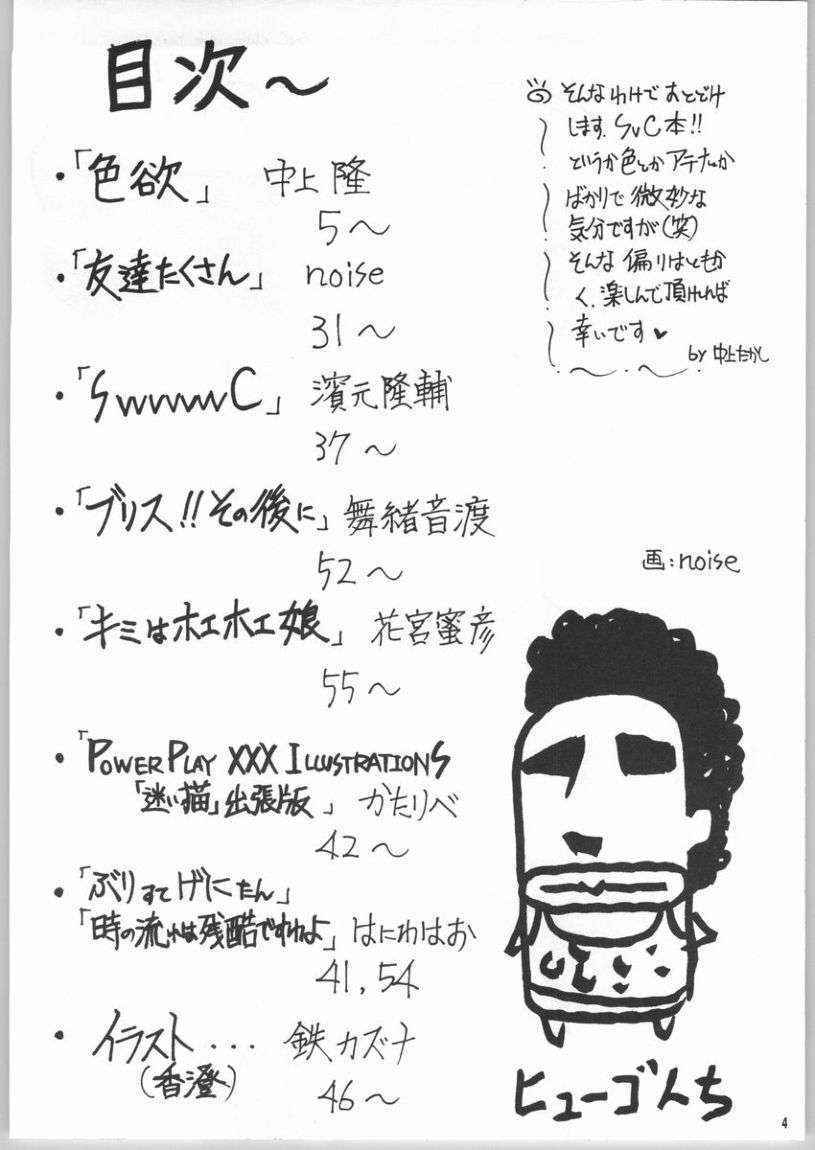 目次～
・「色欲」 中上 隆
5～
・「友達たくさん」 noise
31～
・「SvvvvvvC」 濱元隆輔
37～
・「ブリス!!その後に」 舞緒音渡
52～
・「キミはホエホエ娘」 花宮蜜彦
55～
・「POWER PLAY XXX ILLUSTRATIONS
「迷い猫」出張版」 かたりべ
42～
・「ぶりすてげにたん」
「時の流れは残酷ですわよ」 はにわはお
41,54
・ イラスト・・・ 鉄カズナ
(香澄)
46～
そんなわけで おとどけ
します。SvC本!!
というか色とかアテナとか
ばかりで 微妙な
気分ですが(笑)
そんな 偏りはともか
く、楽しんで頂ければ
幸いです♥
by 中上たかし
画:noise
ヒューゴんち
4